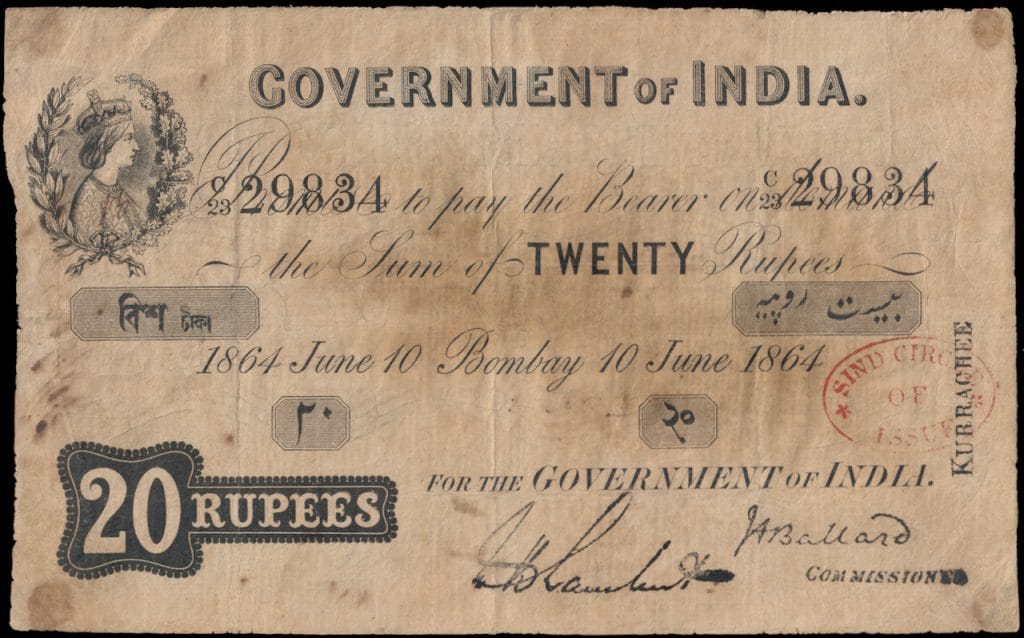 GOVERNMENT OF INDIA.
C 23 29834 C 23 29834
Promise to pay the Bearer on demand
the Sum of TWENTY Rupees
বিংশ টাকা
بیست روپیہ
1864 June 10 Bombay 10 June 1864
SIND CIRCLE
OF
ISSUE
KURRACHEE
۲۰ २०
20 RUPEES
FOR THE GOVERNMENT OF INDIA.
JABallard
COMMISSIONER